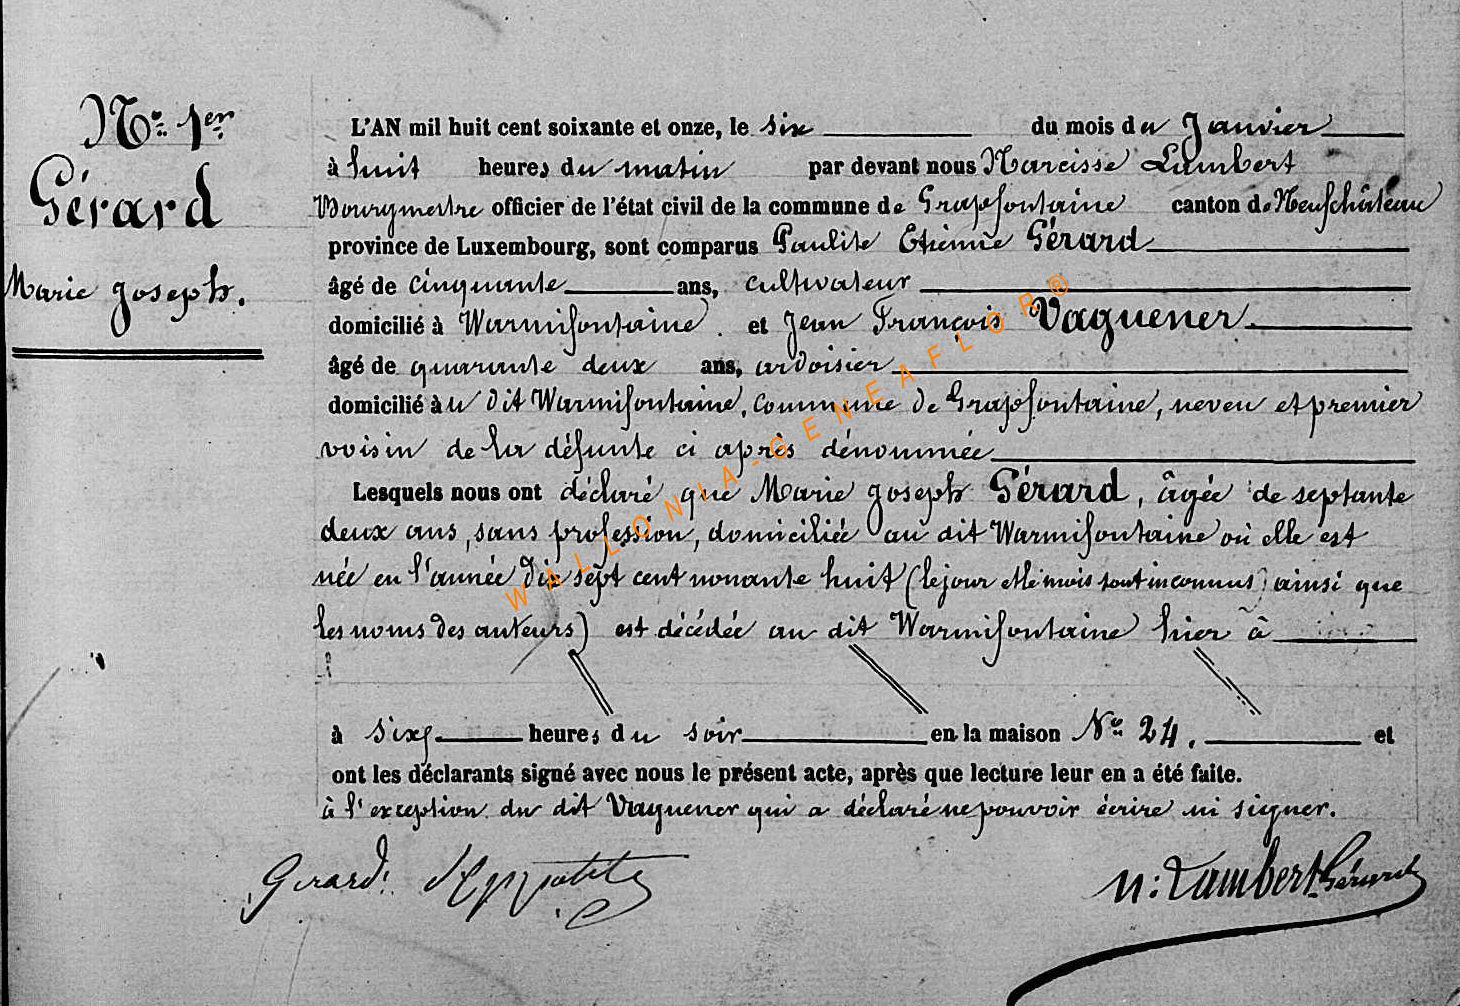 N° 1er
Gérard
Marie Joseph.
L'AN mil huit cent soixante et onze, le six du mois du Janvier
à huit heures du matin par devant nous Narcisse Lambert
Bourgmestre officier de l'état civil de la commune de Grapfontaine canton de Neufchâteau
province de Luxembourg, sont comparus Etienne Gérard
âgé de cinquante ans, cultivateur
domicilié à Warmifontaine et Jean François Vaguener
âgé de quarante deux ans, ardoisier
domicilié àu dit Warmifontaine, commune de Grapfontaine, neveu et premier
voisin de la défunte ci après dénommée
Lesquels nous ont déclaré que Marie Joseph Gérard, âgée de septante
deux ans, sans profession, domiciliée au dit Warmifontaine où elle est
née en l'année dix sept cent nonante huit (le jour et le mois sont inconnus) ainsi que
les noms des auteurs) est décédée au dit Warmifontaine hier à
à six heures du soir en la maison N° 24. et
ont les déclarants signé avec nous le présent acte, après que lecture leur en a été faite.
à l'exception du dit Vaguener qui a déclaré ne pouvoir écrire ni signer.
Gerard N: Lambert-Gérard
WALLONIA-GENEAFLOR®